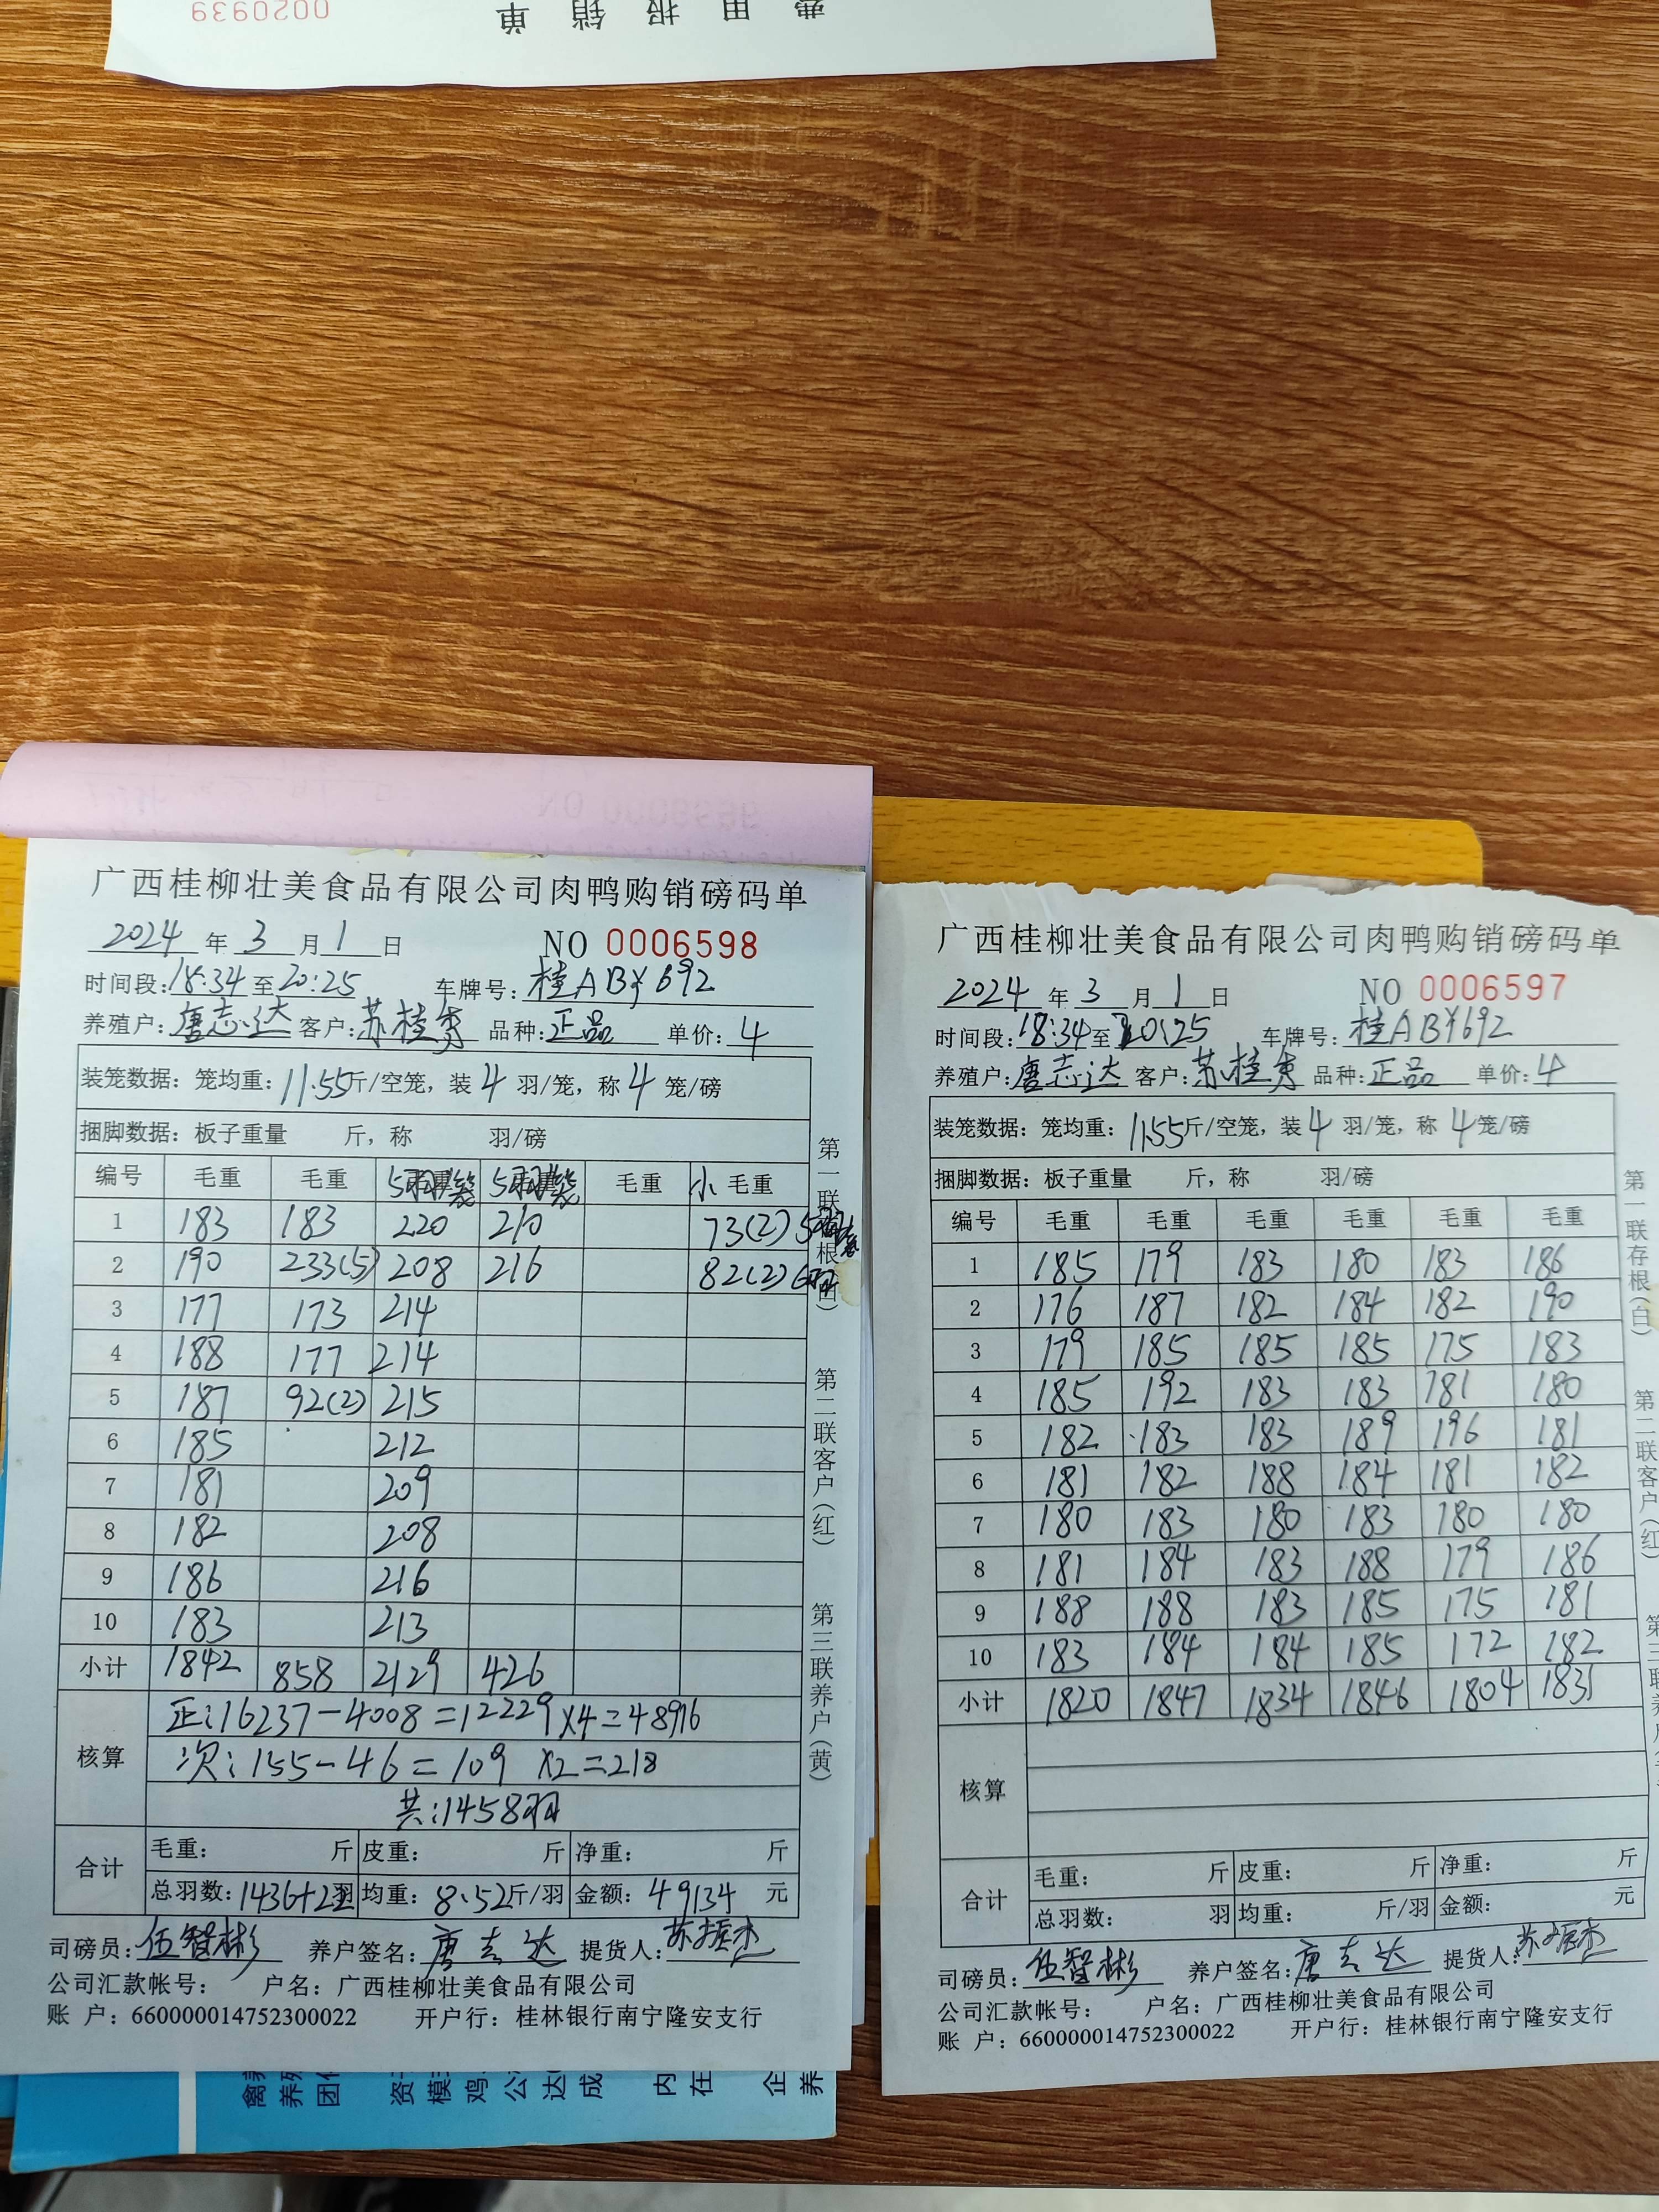 费用报销单
0020939
广西桂柳壮美食品有限公司肉鸭购销磅码单
2024 年 3 月 1 日 NO 0006598
时间段:18:34 至 20:25 车牌号:桂AB 692
养殖户:唐志达 客户:苏桂秀 品种:正品 单价:4
装笼数据: 笼均重: 11.55斤/空笼, 装 4 羽/笼, 称 4 笼/磅
捆脚数据: 板子重量 斤, 称 羽/磅
编号 毛重 毛重 5羽 5羽 毛重 小 毛重
1 183 183 220 210 73(2)
2 190 233(5) 208 216 82(2)
3 177 173 214
4 188 177 214
5 187 92(2) 215
6 185 212
7 181 209
8 182 208
9 186 216
10 183 213
小计 1842 858 2129 426
核算
正:16237-4008=12229×4=48916
次:155-46=109 ×2=218
共:1458羽
合计
毛重: 斤 皮重: 斤 净重: 斤
总羽数:1436+22羽 均重:8.52斤/羽 金额:49134 元
司磅员:伍智彬 养户签名:唐志达 提货人:苏振杰
公司汇款帐号: 户名:广西桂柳壮美食品有限公司
账 户:660000014752300022 开户行:桂林银行南宁隆安支行
第一联存根(白)
第二联客户(红)
第三联养户(黄)
广西桂柳壮美食品有限公司肉鸭购销磅码单
2024 年 3 月 1 日 NO 0006597
时间段:18:34至20:25 车牌号:桂AB 692
养殖户:唐志达 客户:苏桂秀 品种:正品 单价:4
装笼数据: 笼均重: 11.55斤/空笼, 装 4 羽/笼, 称 4 笼/磅
捆脚数据: 板子重量 斤, 称 羽/磅
编号 毛重 毛重 毛重 毛重 毛重 毛重
1 185 179 183 180 183 186
2 176 187 182 184 182 190
3 179 185 185 185 175 183
4 185 192 183 183 181 180
5 182 183 183 189 196 181
6 181 182 188 184 181 182
7 180 183 180 183 180 180
8 181 184 183 188 179 186
9 188 188 183 185 175 181
10 183 184 184 185 172 182
小计 1820 1847 1834 1846 1804 1831
核算
合计
毛重: 斤 皮重: 斤 净重: 斤
总羽数: 羽 均重: 斤/羽 金额: 元
司磅员:伍智彬 养户签名:唐志达 提货人:苏振杰
公司汇款帐号: 户名:广西桂柳壮美食品有限公司
账 户:660000014752300022 开户行:桂林银行南宁隆安支行
第一联存根(白)
第二联客户(红)
第三联养户